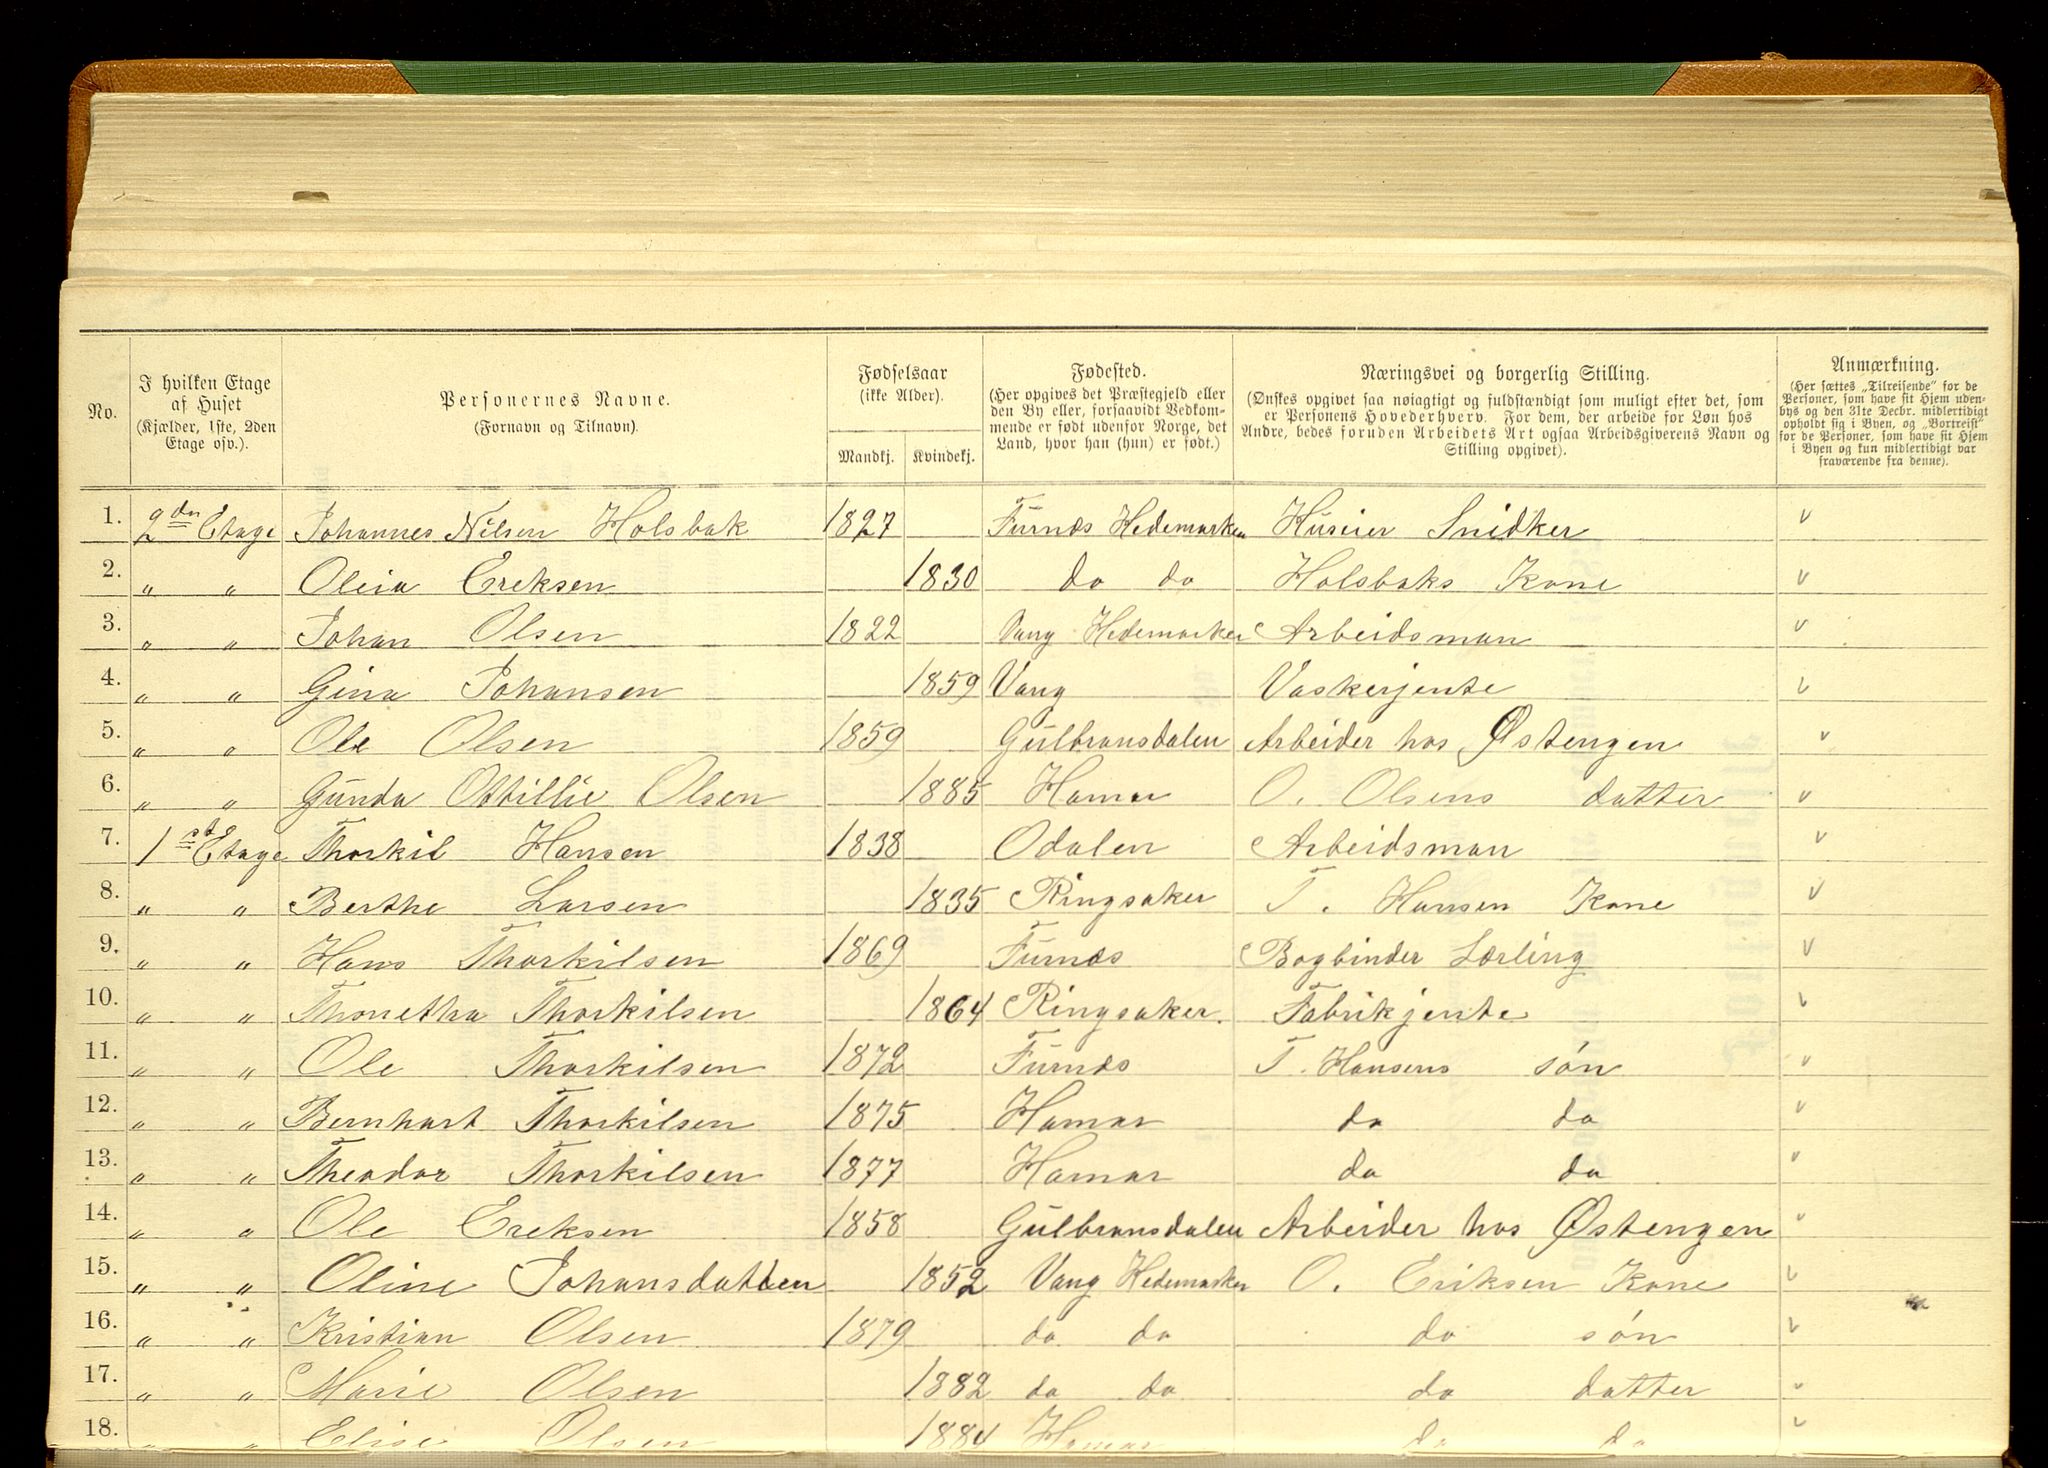 No. I hvilken Etage af Huset (Kjælder, 1ste, 2den Etage osv.). Personernes Navne. (Fornavn og Tilnavn). Fødselsaar (ikke Alder). Mandkj. Kvindekj. Fødested. (Her opgives det Præstegjeld eller den By eller, forsaavidt Vedkommende er født udenfor Norge, det Land, hvor han (hun) er født.) Næringsvei og borgerlig Stilling. (Ønskes opgivet saa nøiagtigt og fuldstændigt som muligt efter det, som er Personens Hovederhverv. For dem, der arbeide for Løn hos Andre, bedes foruden Arbeidets Art ogsaa Arbeidsgiverens Navn og Stilling opgivet). Anmærkning. (Her sættes „Tilreisende" for de Personer, som have sit Hjem udenbys og den 31te Decbr. midlertidigt opholdt sig i Byen, og „Bortreist" for de Personer, som have sit Hjem i Byen og kun midlertidigt var fraværende fra denne).
1. 2den Etage Johannes Nilsen Holsbak 1827 Furnæs Hedemarken Huseier Snidker v
2. " " Oleia Ereksen 1830 do do Holsbaks Kone v
3. " " Johan Olsen 1822 Vang Hedemarken Arbeidsman v
4. " " Gina Johansen 1859 Vang Vaskerjente v
5. " " Ole Olsen 1859 Gulbransdalen Arbeider hos Østengen v
6. " " Gunda Ottillie Olsen 1885 Hamar O. Olsens datter v
7. 1st Etage Thorkil Hansen 1838 Odalen Arbeidsman v
8. " " Berthe Larsen 1835 Ringsaker T. Hansen Kone v
9. " " Hans Thorkilsen 1869 Furnæs Bogbinder Lærling v
10. " " Thonetha Thorkilsen 1864 Ringsaker. Fabrikjente v
11. " " Ole Thorkilsen 1872 Furnæs T. Hansens søn v
12. " " Bernhart Thorkilsen 1875 Hamar do do v
13. " " Theodor Thorkilsen 1877 Hamar do do v
14. " " Ole Ereksen 1858 Gulbransdalen Arbeider hos Østengen v
15. " " Oline Johansdatten 1852 Vang Hedemarken O. Eriksen Kone v
16. " " Kristian Olsen 1879 do do do søn v
17. " " Marie Olsen 1882 do do do datter v
18. " " Elise Olsen 1884 Hamar do do v